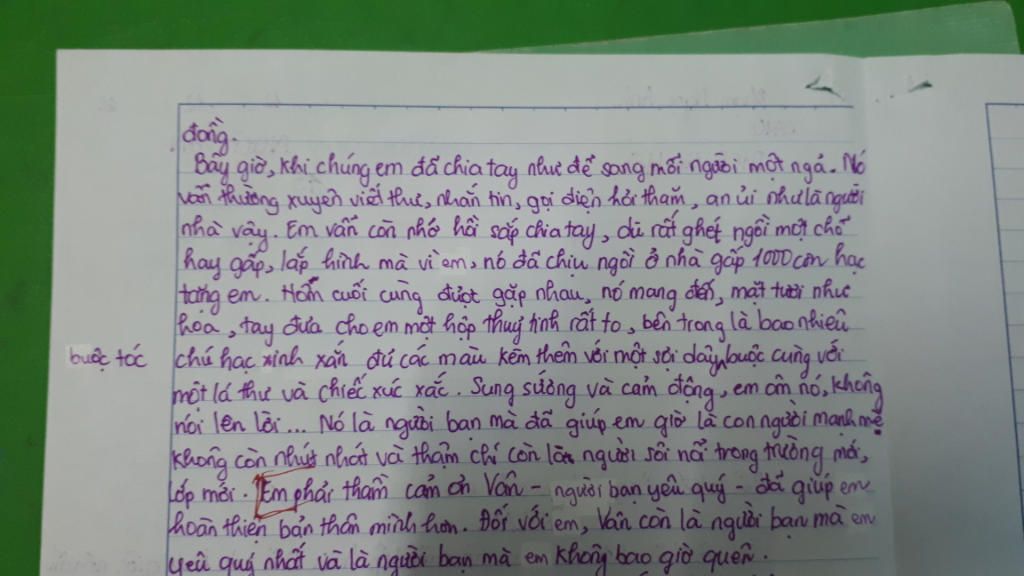 đồng.
Bây giờ, khi chúng em đã chia tay như để sang mỗi người một ngả. Nó
vẫn thường xuyên viết thư, nhắn tin, gọi điện hỏi thăm, an ủi như là người
nhà vậy. Em vẫn còn nhớ hồi sắp chia tay, dù rất ghét ngồi một chỗ
hay gấp, lắp hình mà vì em, nó đã chịu ngồi ở nhà gấp 1000 con hạc
tặng em. Hôm cuối cùng được gặp nhau, nó mang đến, mặt tươi như
hoa, tay đưa cho em một hộp thuỷ tinh rất to, bên trong là bao nhiêu
buộc tóc
chú hạc xinh xắn đủ các màu kèm thêm với một sợi dây buộc cùng với
một lá thư và chiếc xúc xắc. Sung sướng và cảm động, em ôm nó, không
nói lên lời... Nó là người bạn mà đã giúp em giờ là con người mạnh mẽ
không còn nhút nhát và thậm chí còn là người sôi nổi trong trường mới,
lớp mới. Em phải thầm cảm ơn Vân - người bạn yêu quý - đã giúp em
hoàn thiện bản thân mình hơn. Đối với em, Vân còn là người bạn mà em
yêu quý nhất và là người bạn mà em không bao giờ quên.